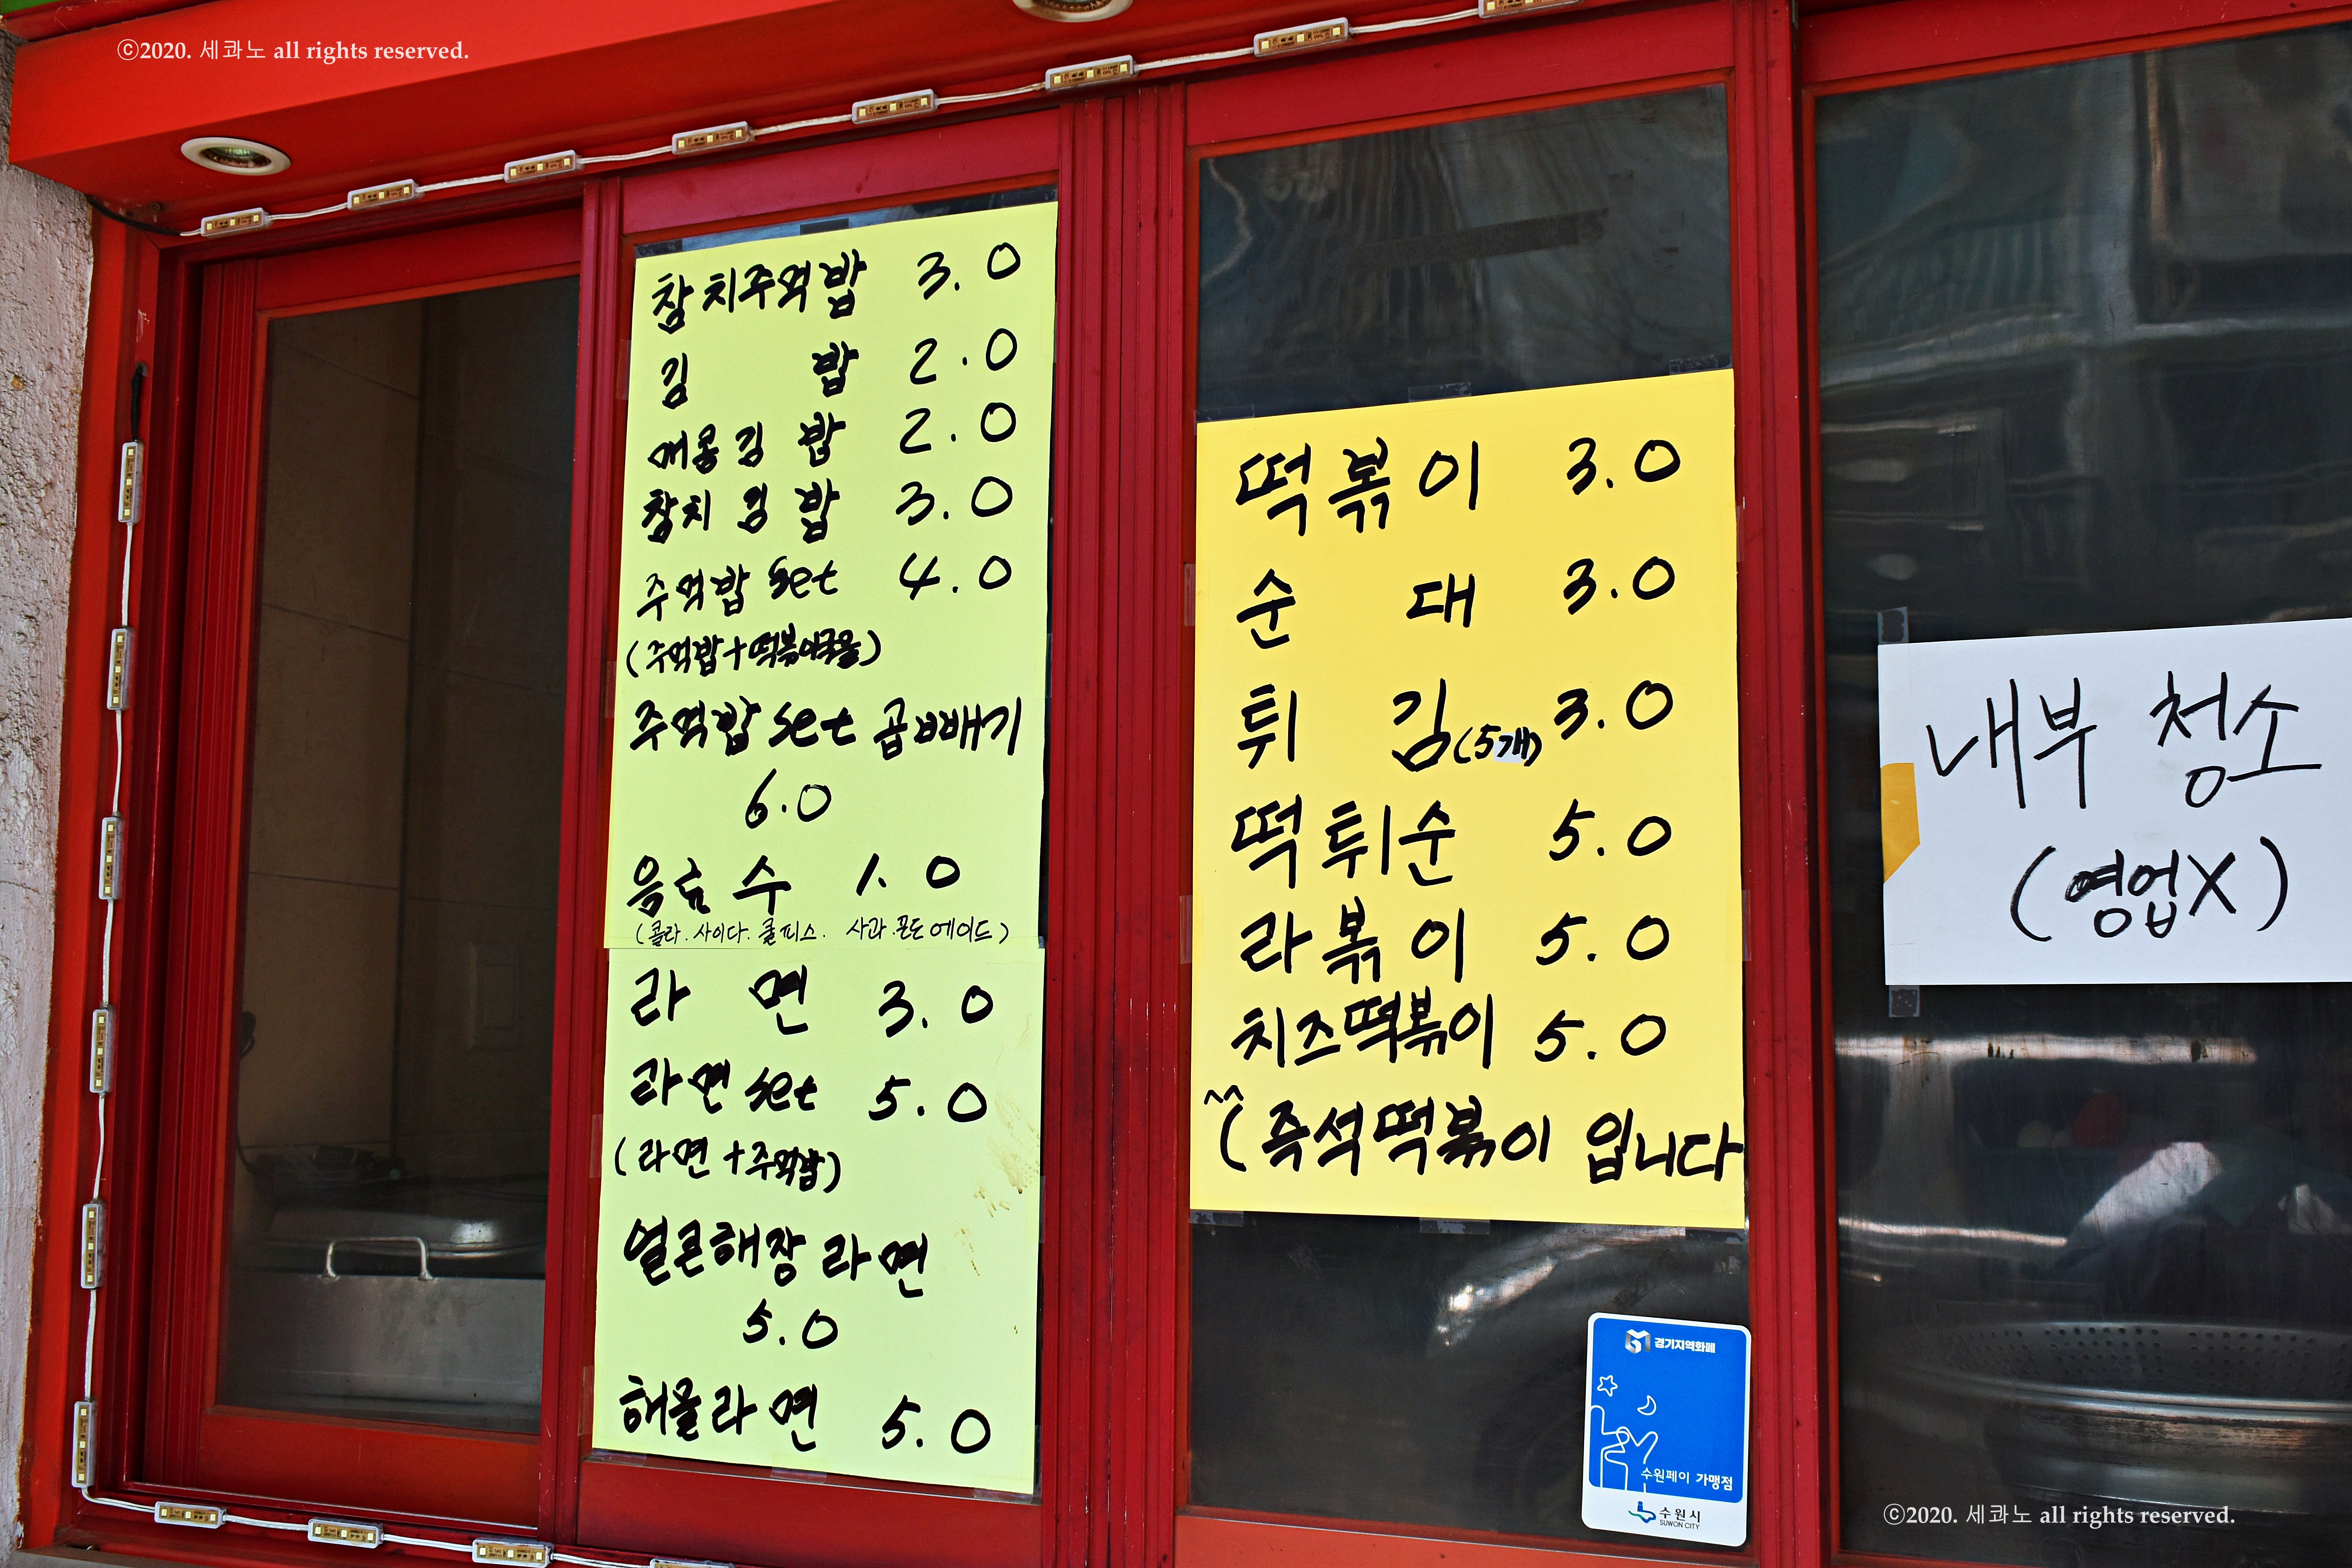 ⓒ2020. 세콰노 all rights reserved.
참치주먹밥 3.0
김 밥 2.0
매콤김밥 2.0
참치김밥 3.0
주먹밥 set 4.0
(주먹밥+떡볶이국물)
주먹밥 set 곱빼기
6.0
음료수 1.0
(콜라. 사이다. 쿨피스. 사과. 포도 에이드)
라 면 3.0
라면 set 5.0
(라면+주먹밥)
얼큰해장라면
5.0
해물라면 5.0
떡볶이 3.0
순 대 3.0
튀 김(5개) 3.0
떡튀순 5.0
라볶이 5.0
치즈떡볶이 5.0
^^
(즉석떡볶이 입니다
내부 청소
(영업X)
경기지역화폐
수원페이 가맹점
수원시
SUWON CITY
ⓒ2020. 세콰노 all rights reserved.